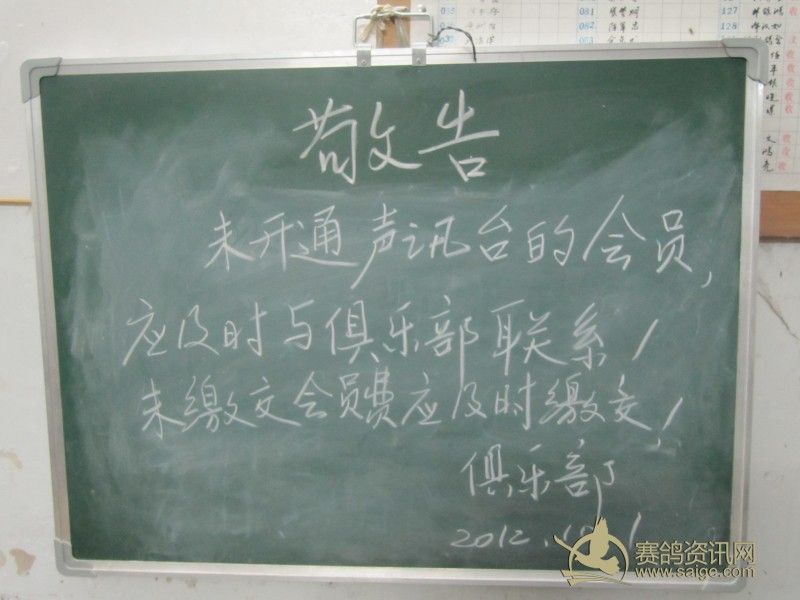 081
127
082
128
083
敬告
未开通声讯台的会员,
应及时与俱乐部联系!
未缴交会员费应及时缴交!
俱乐部
2012.
赛鸽资讯网
www.saige.com